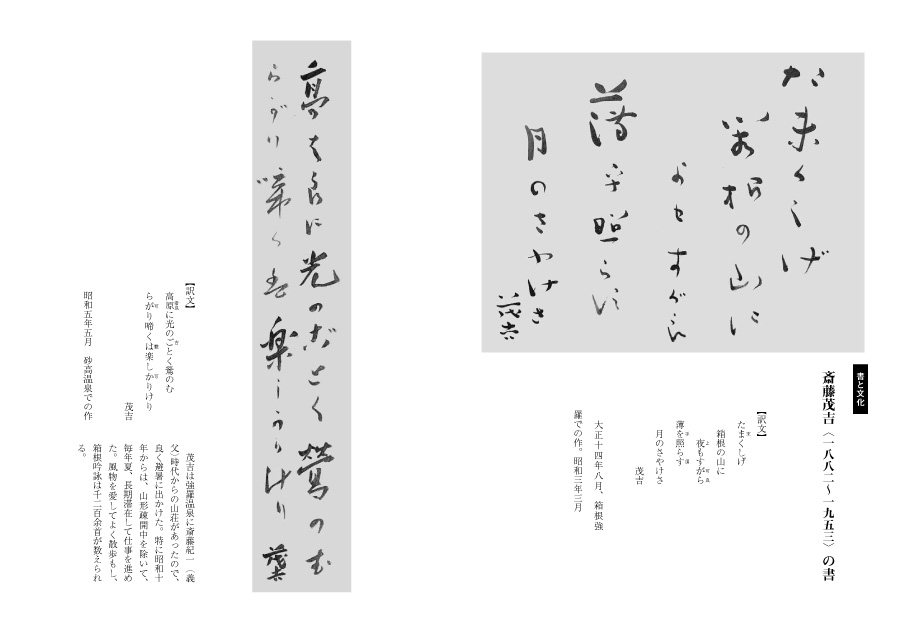 た末くしげ
箱根の山に
よもすがら
薄乎照らす
月のさやけさ
茂吉
書と文化
斎藤茂吉(一八八二〜一九五三)の書
【訳文】
たまくしげ
箱根の山に
夜もすがら
薄を照らす
月のさやけさ
茂吉
大正十四年八月、箱根強
羅での作。昭和三年三月
高者良に光のごとく鶯のむ
らがり啼くは楽しかりけり 茂吉
【訳文】
高原に光のごとく鶯のむ
らがり啼くは楽しかりけり
茂吉
昭和五年五月 砂高温泉での作
茂吉は強羅温泉に斎藤紀一(義
父)時代からの山荘があったので、
良く避暑に出かけた。特に昭和十
年からは、山形疎開中を除いて、
毎年夏、長期滞在して仕事を進め
た。風物を愛してよく散歩もし、
箱根吟詠は千二百余首が数えられ
る。